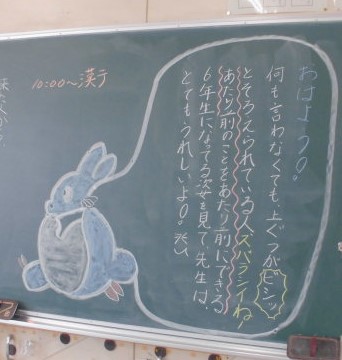 おはよう。
何も言わなくても、上ぐつがビシッ
とそろえられている人ズバラシイね!
あたり前のことをあたり前にできる
6年生になってる姿を見て、先生は、
とてもうれしいよ。
10:00〜漢テ